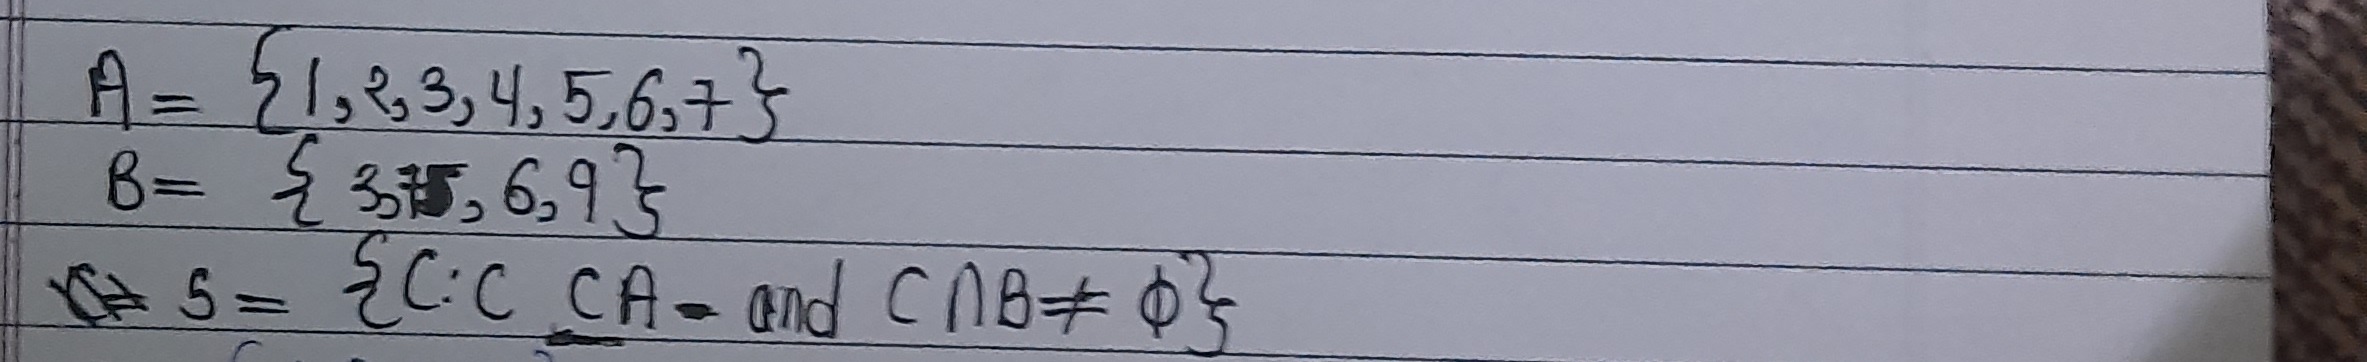 A = {1, 2, 3, 4, 5, 6, 7}
B = {3, 5, 6, 9}
S = {C : C ⊆ A and C ∩ B ≠ ϕ}